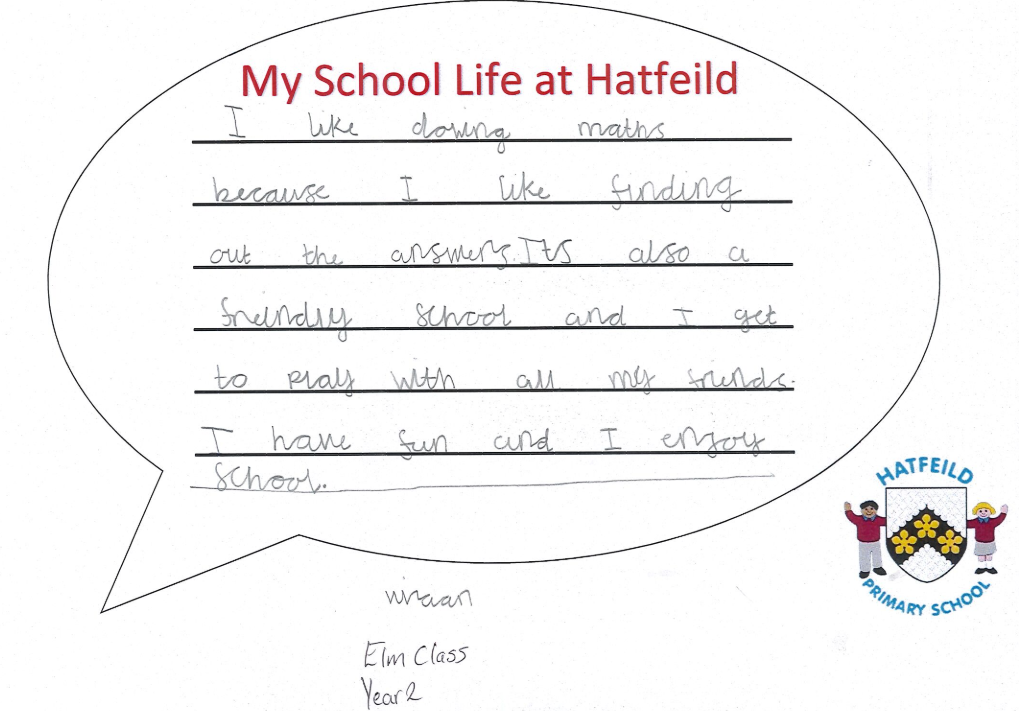 My School Life at Hatfeild
I like doing maths
because I like finding
out the answers. Its also a
friendly school and I get
to play with all my friends.
I have fun and I enjoy
school.
HATFEILD
PRIMARY SCHOOL
Elm Class
Year 2